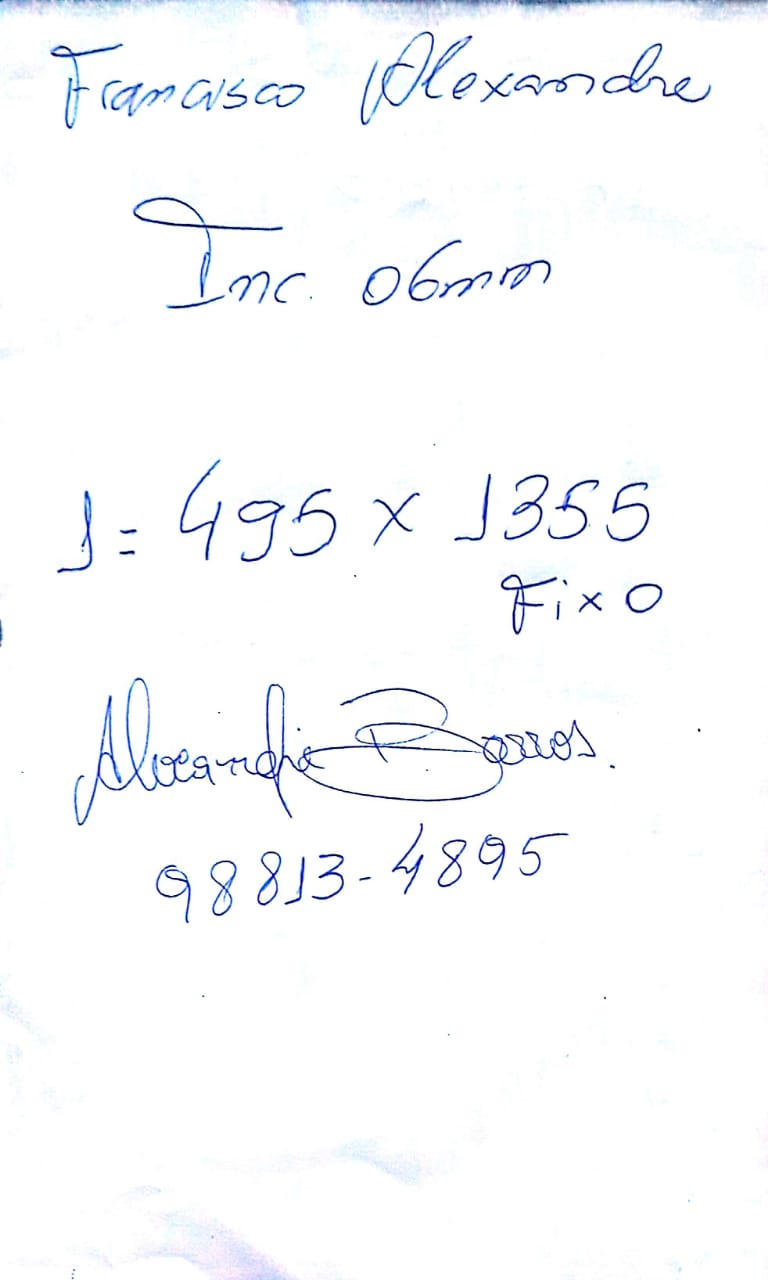 Francisco Alexandre
Inc. 06mm
1= 495 x 1355
Fixo
Barros.
98813-4895